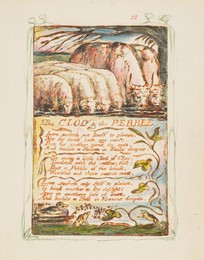 32
The CLOD & the PEBBLE
Love seeketh not Itself to please,
Nor for itself hath any care;
But for another gives its ease,
And builds a Heaven in Hells despair.
So sang a little Clod of Clay,
Trodden with the cattles feet:
But a Pebble of the brook,
Warbled out these metres meet.
Love seeketh only Self to please,
To bind another to its delight:
Joys in anothers loss of ease,
And builds a Hell in Heavens despite.